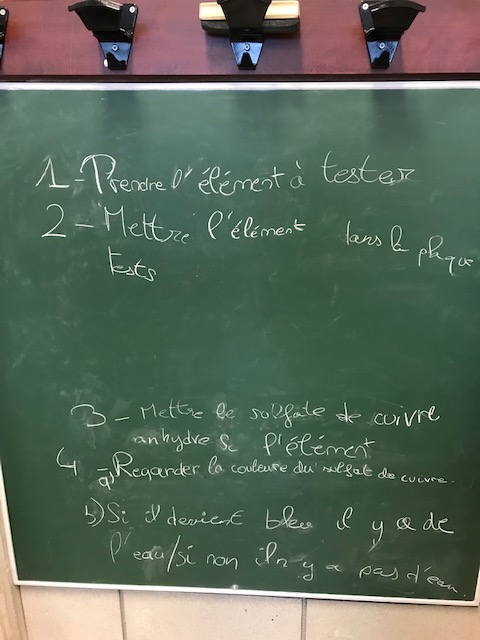 1-Prendre l'élément à tester
2-Mettre l'élément dans la plaque
tests
3-Mettre le solfate de cuivre
anhydre sr l'élément
4 a) Regarder la couleure du sulfat de cuivre.
b) Si il devient bleu il y a de
l'eau/si non il n y a pas d'eau.